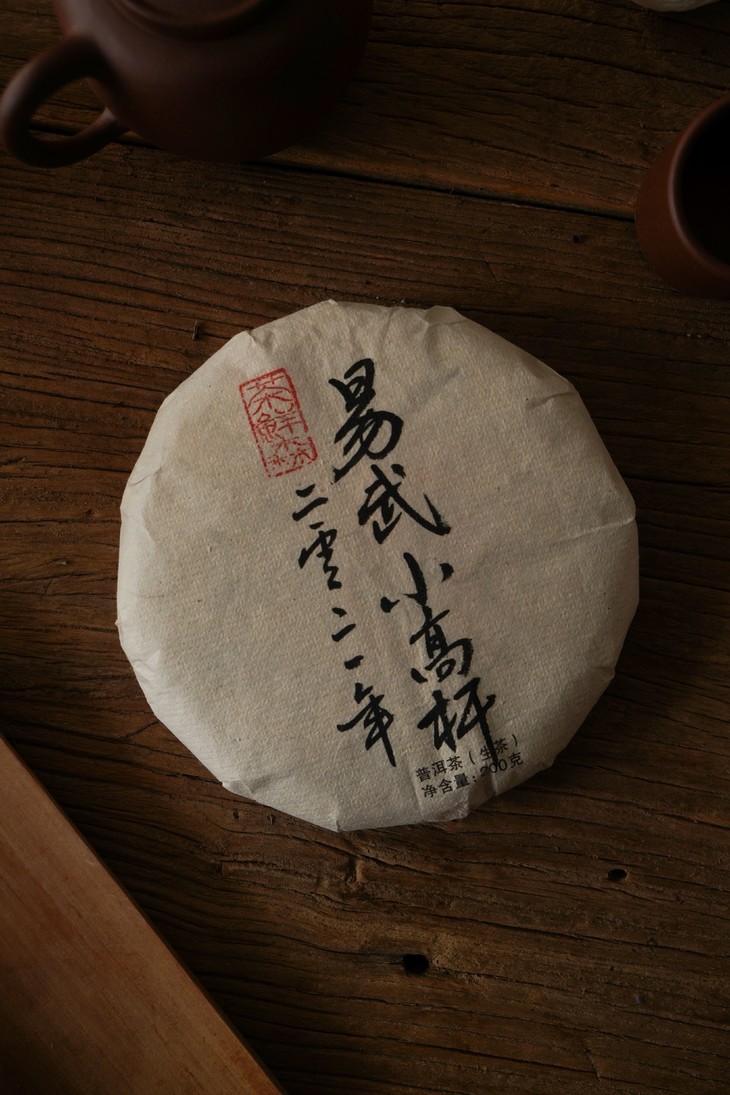 易武小高杆
二零二一年
茶鮮森
普洱茶（生茶）
净含量：200克